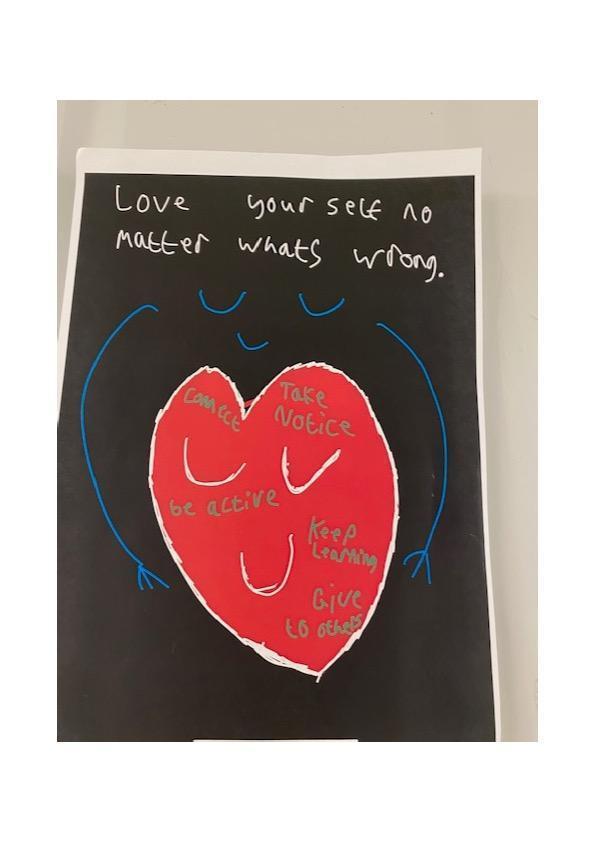 Love your self no
matter whats wrong.
Connect
Take
Notice
be active
Keep
Learning
Give
to others